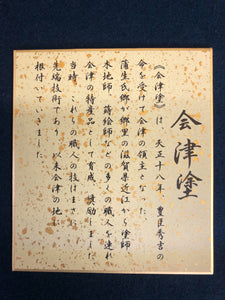 会津塗
《会津塗》は、天正十八年、豊臣秀吉の
命を受けて会津の領主となった、
蒲生氏郷が郷里の滋賀県近江から塗師
木地師、蒔絵師などの多くの職人を連れ
会津の特産品として育成、奨励しました
当時、これらの職人の技はまさに
先端技術であり、以来会津の地に
根付いていきました。